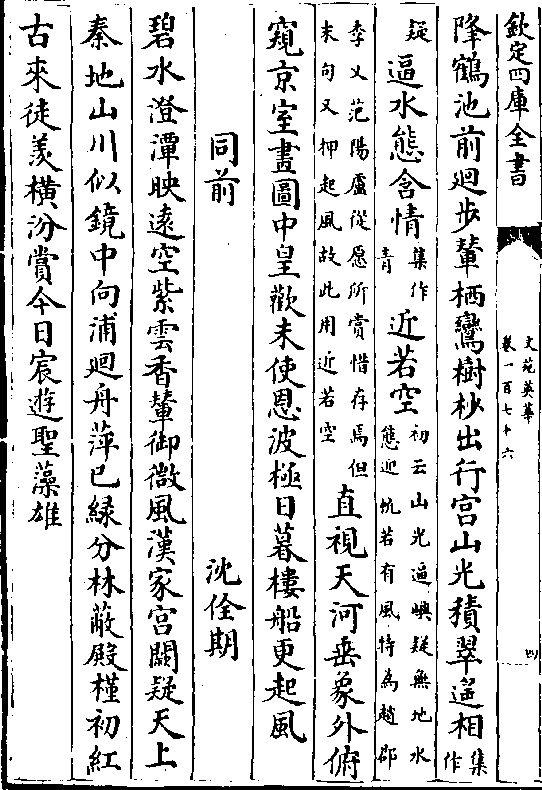 欽定四庫全書
文苑英華
卷一百七十六
四
降鶴池前廻步輦栖鸞樹杪出行宫山光積翠遥相集作
疑逼水態含情集作青近若空初云山光遍嶼疑無地水態迎帆若有風特為趙郡
李乂范陽盧從愿所賞惜存焉但末句又押起風故此用近若空直視天河垂象外俯
窺京室畫圖中皇歡未使恩波極日暮樓船更起風
同前
沈佺期
碧水澄潭映遠空紫雲香輦御微風漢家宫闕疑天上
秦地山川似鏡中向浦廻舟萍已緑分林蔽殿槿初紅
古來徒羡横汾賞今日宸遊聖藻雄